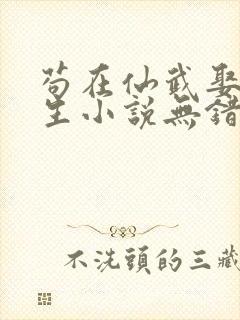 苟在仙武娶
生小說無錯
不洗頭的三藏